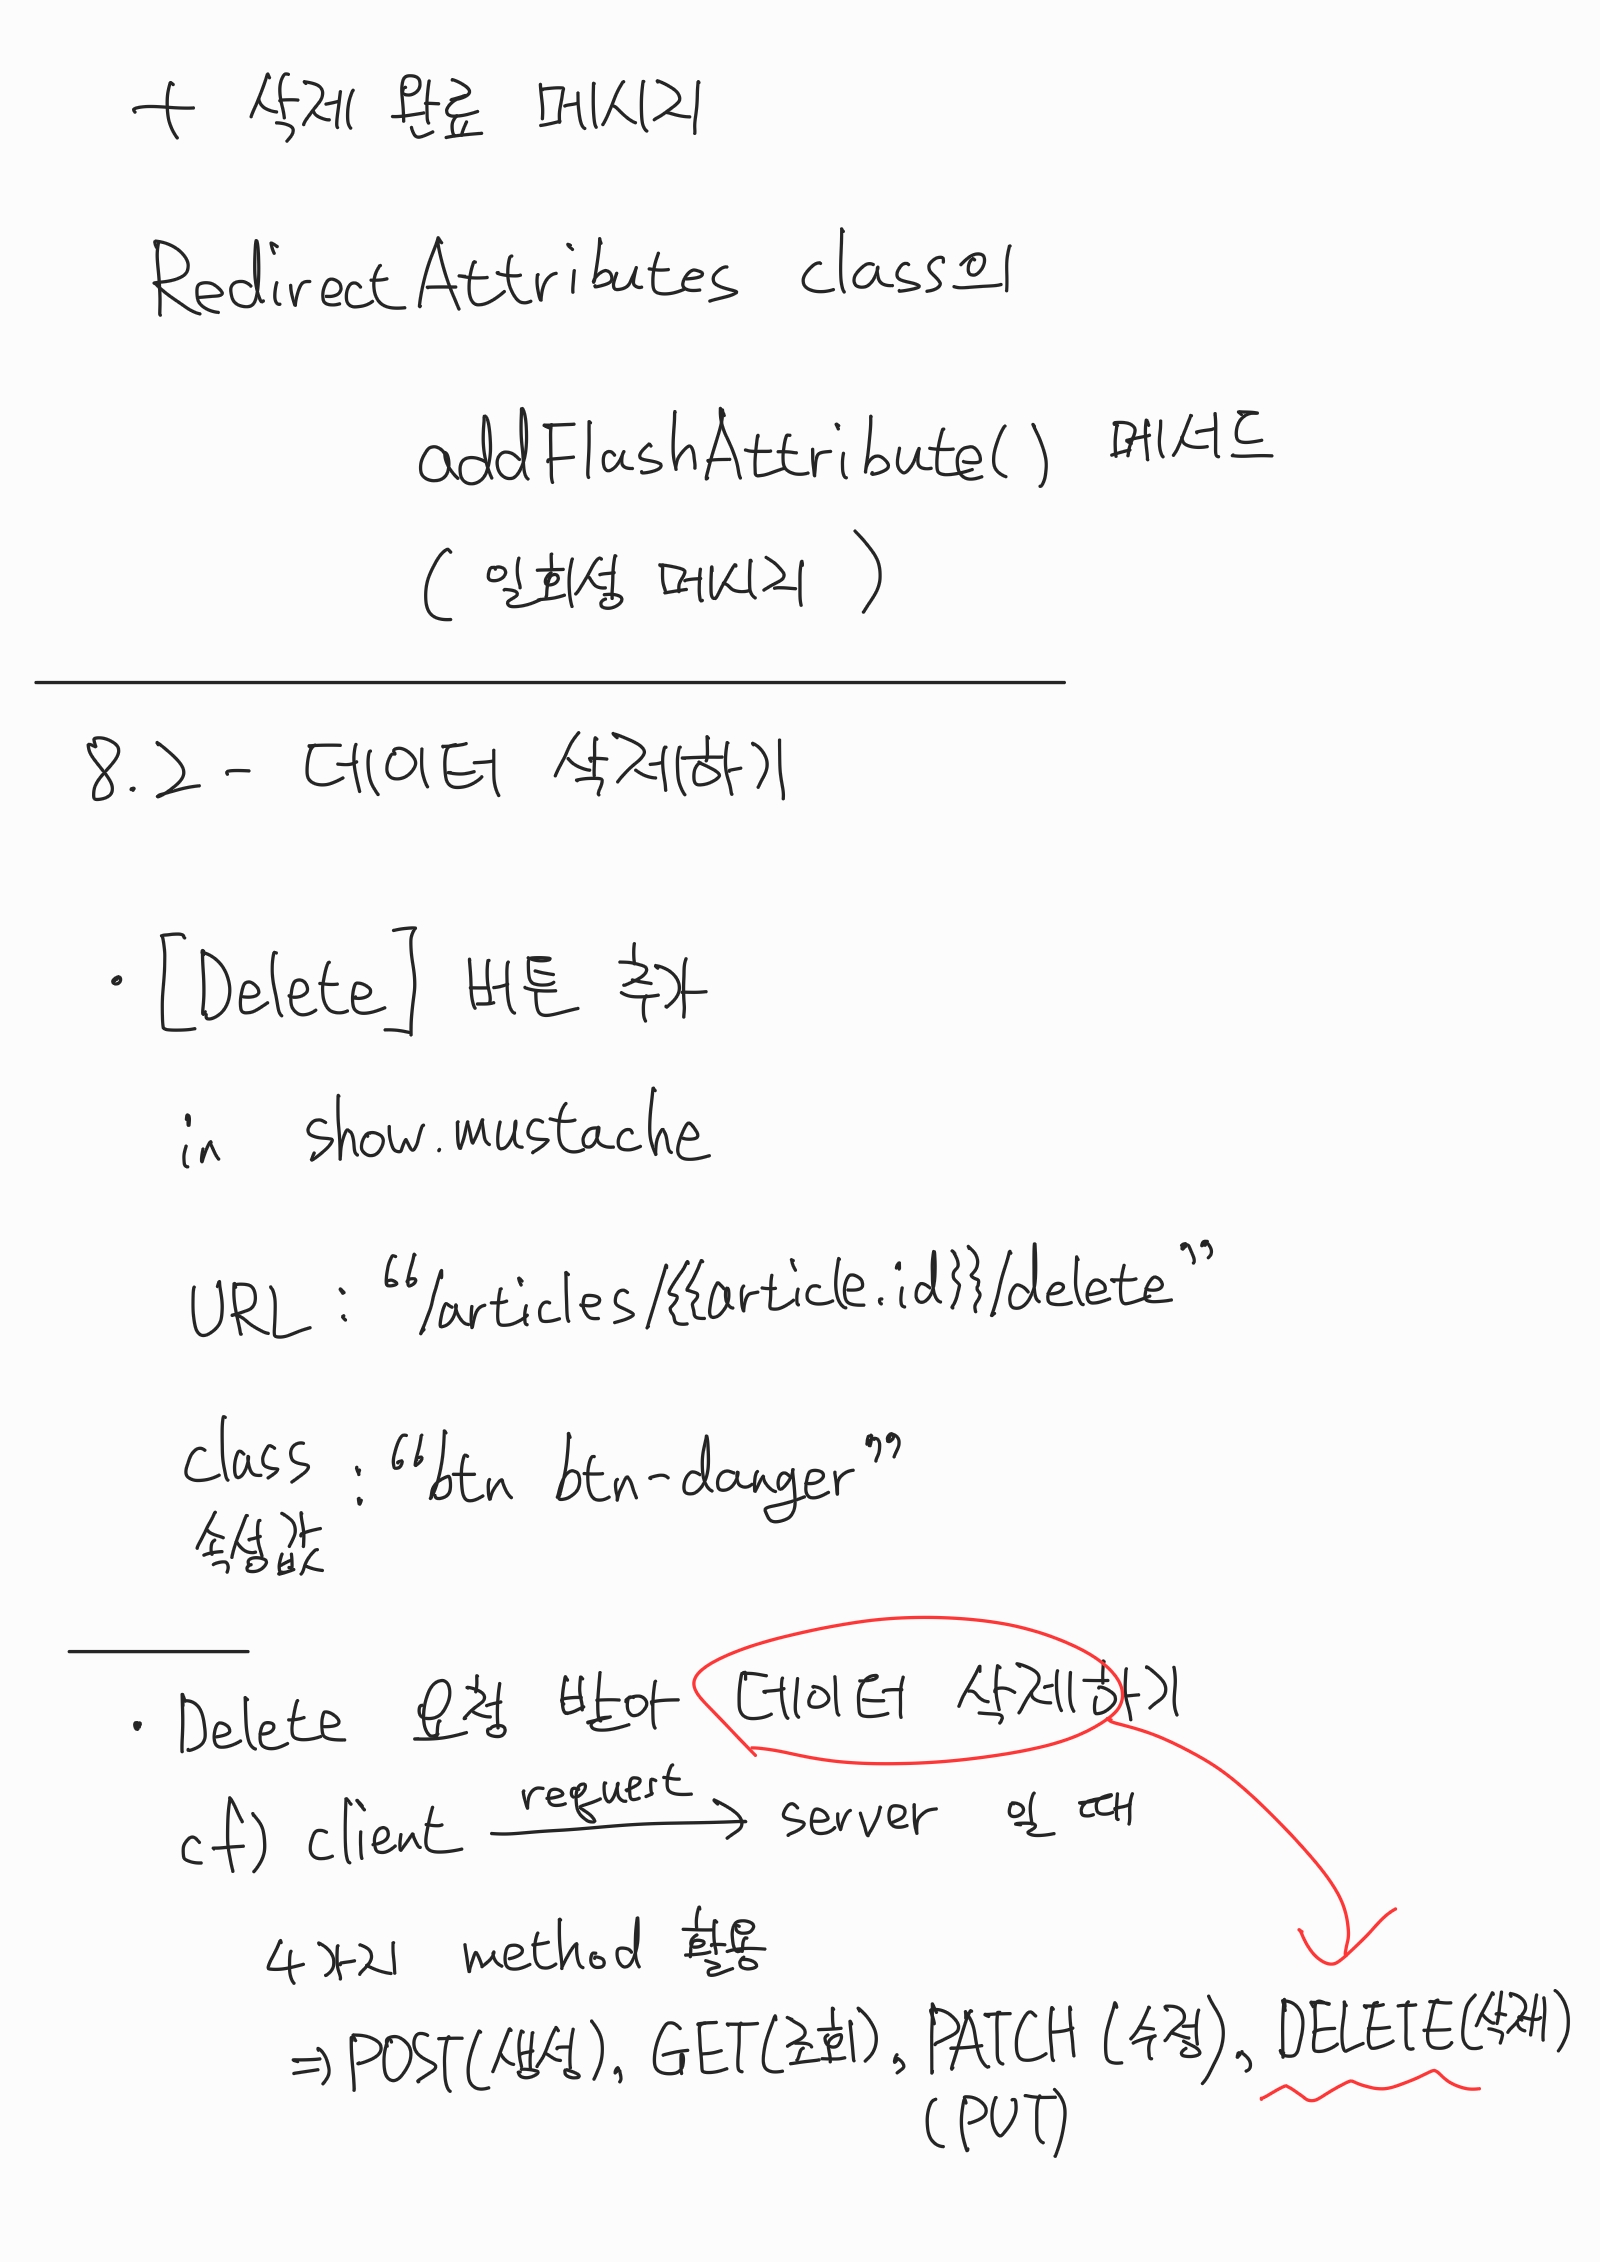 + 삭제 완료 메시지
RedirectAttributes class의
addFlashAttribute() 메서드
(일회성 메시지)
8.2 - 데이터 삭제하기
· [Delete] 버튼 추가
in show.mustache
URL : “/articles/{{article.id}}/delete”
class : “btn btn-danger”
속성값
· Delete 요청 받아 데이터 삭제하기
request
cf) client → server 일 때
4가지 method 활용
⇒ POST(생성), GET(조회), PATCH (수정), DELETE(삭제)
(PUT)